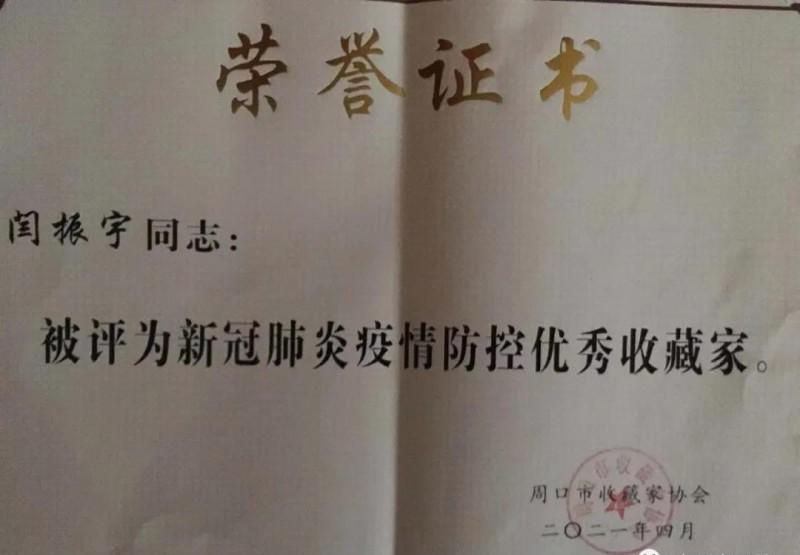 荣誉证书
闫振宇同志：
被评为新冠肺炎疫情防控优秀收藏家。
周口市收藏家协会
二〇二一年四月